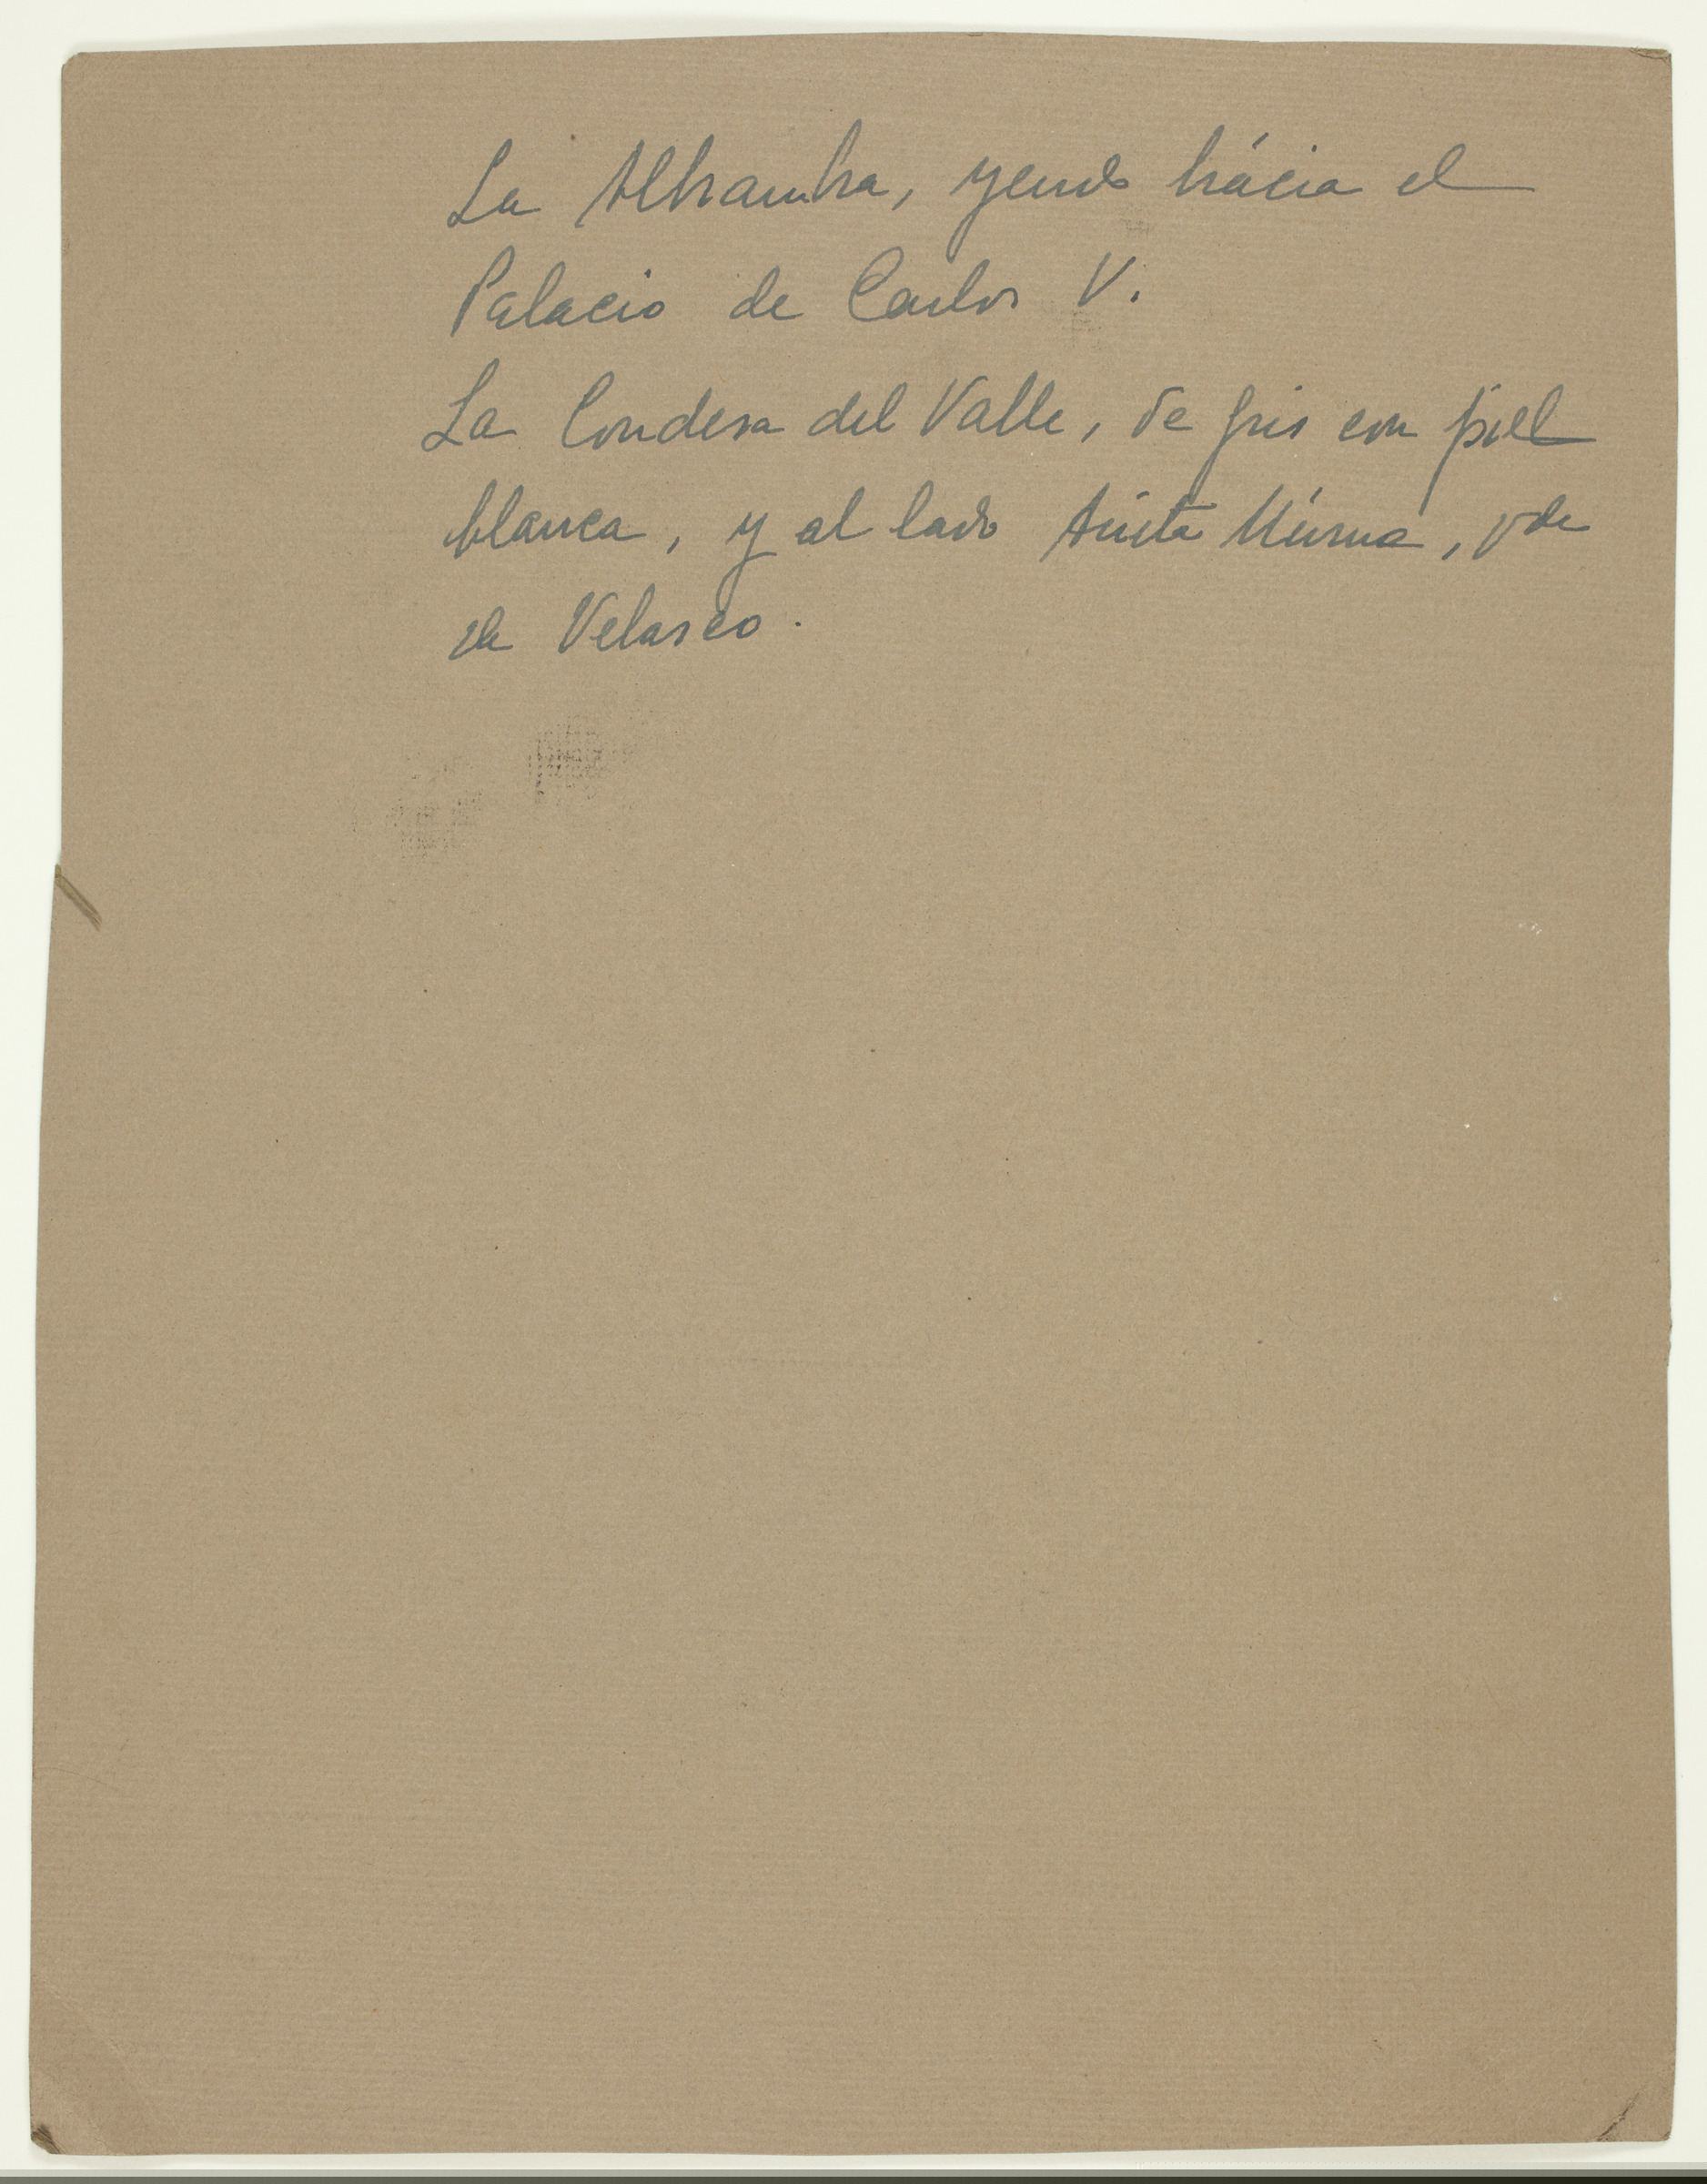 La Alhambra, yendo hácia el
Palacio de Carlos V.
La Condesa del Valle, de gris con piel
blanca, y al lado Anita Múrua, vda
de Velasco.